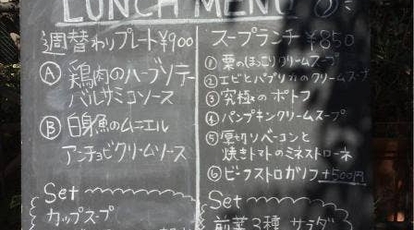 LUNCH MENU
週替わりプレート ¥900
Ⓐ 鶏肉のハーブソテー
バルサミコソース
Ⓑ 白身魚のムニエル
アンチョビクリームソース
Set
カップスープ
スープランチ ¥850
① 栗のほっこりクリームスープ
② エビとパプリカのクリームスープ
③ 究極のポトフ
④ パンプキンクリームスープ
⑤ 厚切りベーコンと
焼きトマトのミネストローネ
⑥ ビーフストロガノフ +500円
Set
前菜3種 サラダ